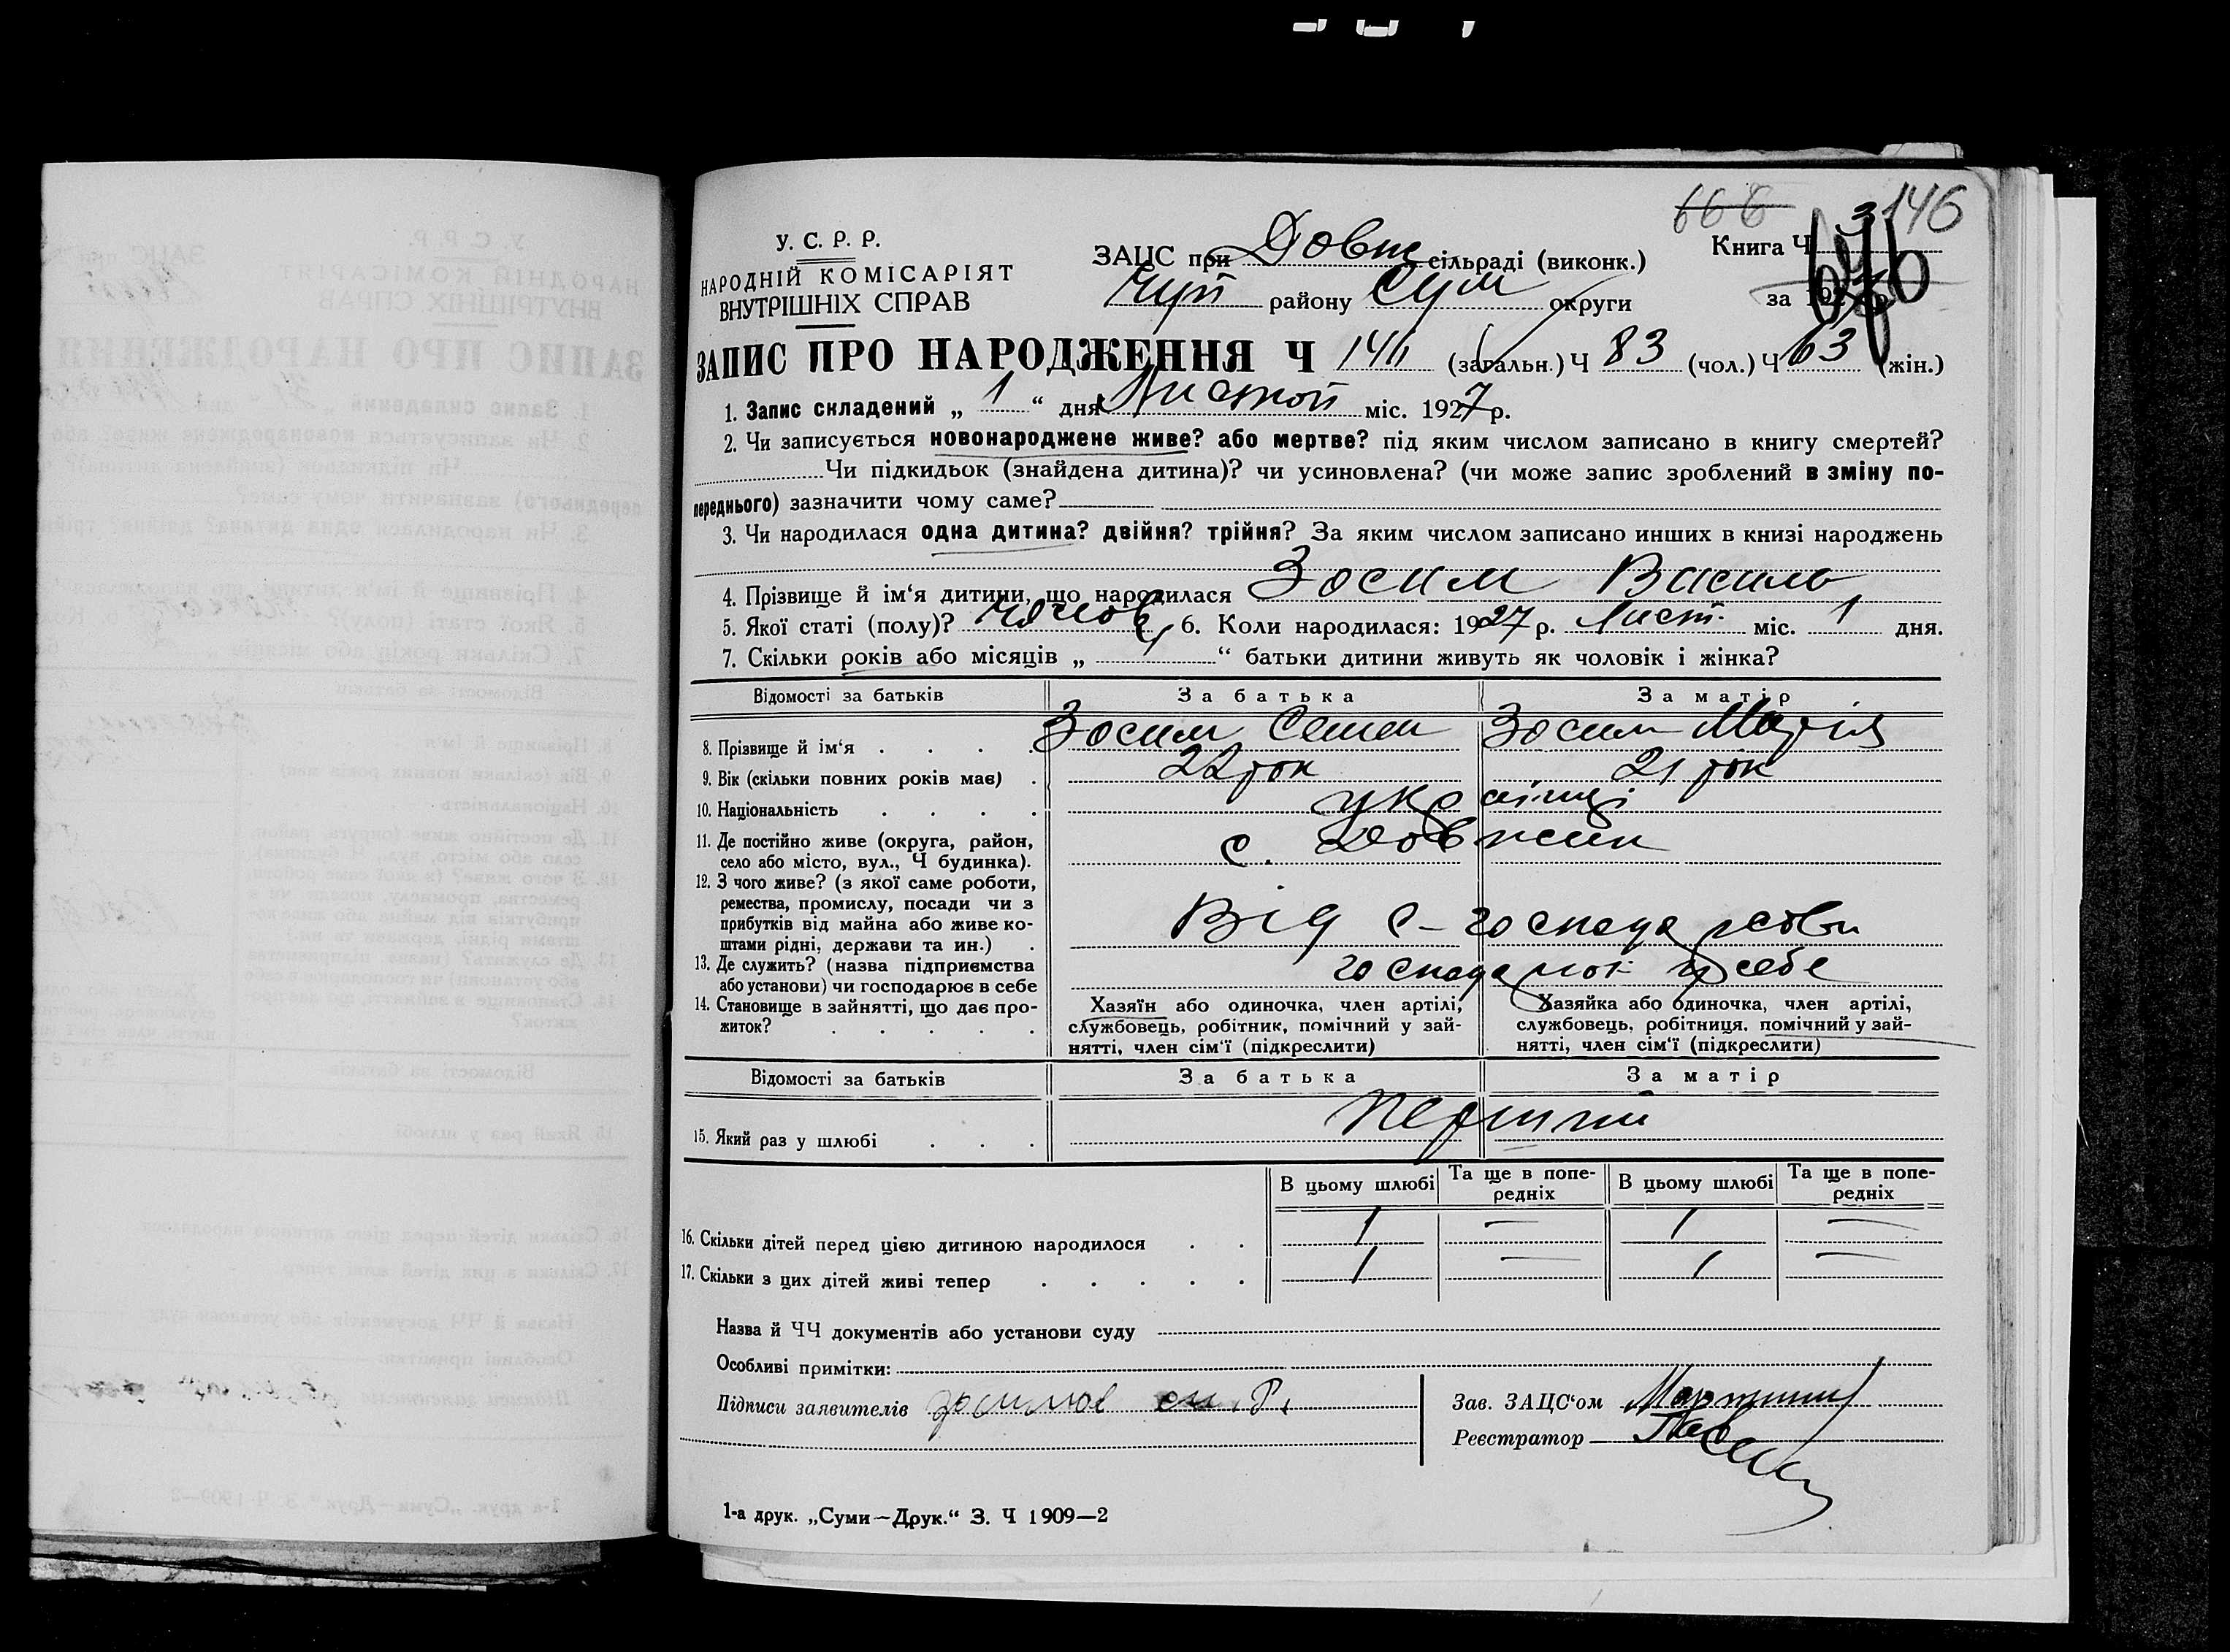 666 146
У. С. Р. Р.
НАРОДНІЙ КОМІСАРІЯТ
ВНУТРІШНІХ СПРАВ
ЗАЦС при Довж сільраді (виконк.)
Книга Ч 3
Чуп району Сум округи
за 192 р.
ЗАПИС ПРО НАРОДЖЕННЯ Ч (загальн.) Ч 83 (чол.) Ч 63 (жін.)
1. Запис складений „ 1 “ дня Листоп міс. 1927 р.
2. Чи записується новонароджене живе? або мертве? під яким числом записано в книгу смертей?
Чи підкидьок (знайдена дитина)? чи усиновлена? (чи може запис зроблений в зміну по-
переднього) зазначити чому саме?
3. Чи народилася одна дитина? двійня? трійня? За яким числом записано инших в книзі народжень
4. Прізвище й ім‘я дитини, що народилася Зосим Василь
5. Якої статі (полу)? 6. Коли народилася: 1927 р. Лист. міс. 1 дня.
7. Скільки років або місяців „ “ батьки дитини живуть як чоловік і жінка?
Відомості за батьків За батька За матір
8. Прізвище й ім‘я . . . . Зосим Семен Зосим Марія
9. Вік (скільки повних років має) . 22 рок 21 рок
10. Національність . . . . українці
11. Де постійно живе (округа, район,
село або місто, вул., Ч будинка). с. Довжик
12. З чого живе? (з якої саме роботи,
ремества, промислу, посади чи з
прибутків від майна або живе ко-
штами рідні, держави та ин.) . Від с-господарства
13. Де служить? (назва підприємства
або установи) чи господарює в себе у себе
14. Становище в зайнятті, що дає про-
житок? . . . . .
Хазяїн або одиночка, член артілі,
службовець, робітник, помічний у зай-
нятті, член сім‘ї (підкреслити)
Хазяйка або одиночка, член артілі,
службовець, робітниця, помічний у зай-
нятті, член сім‘ї (підкреслити)
Відомості за батьків За батька За матір
15. Який раз у шлюбі . . . перший
В цьому шлюбі Та ще в попе-
редніх В цьому шлюбі Та ще в попе-
редніх
16. Скільки дітей перед цією дитиною народилося . . 1 — 1 —
17. Скільки з цих дітей живі тепер . . . . . 1 — 1 —
Назва й ЧЧ документів або установи суду
Особливі примітки:
Підписи заявителів
Зав. ЗАЦС‘ом
Реєстратор
1-а друк. „Суми—Друк.“ З. Ч 1909—2